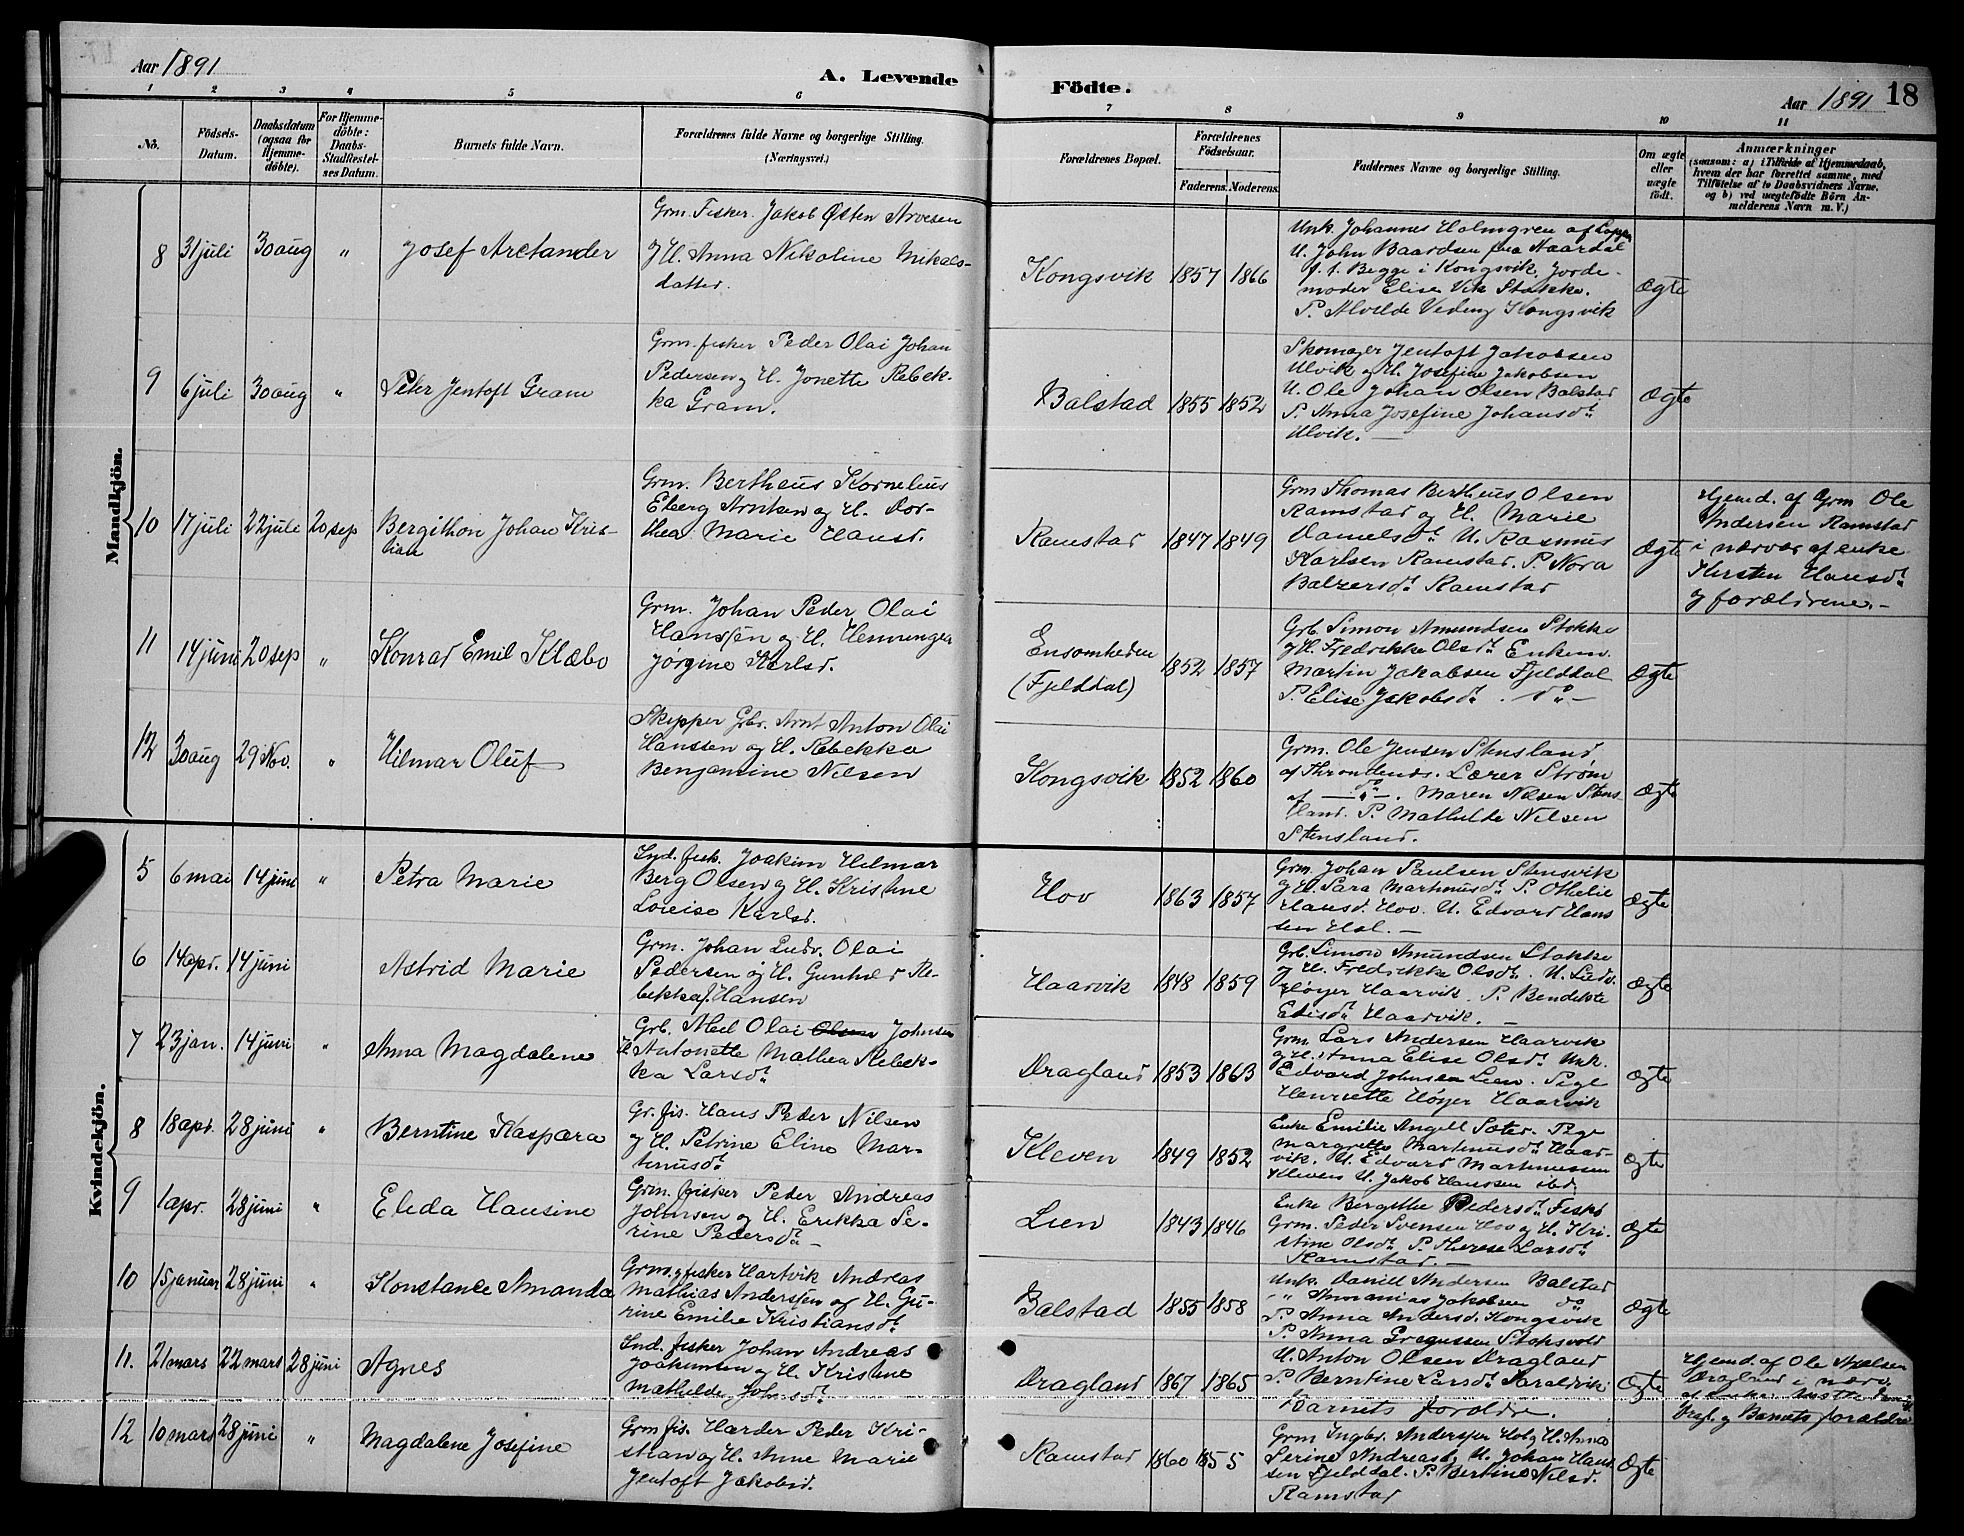 Aar 1891
A. Levende
Födte.
Aar 1891
18
1 2 3 4 5 6 7 8 9 10 11
No.
Födsels-
Datum.
Daabsdatum
(ogsaa for
Hjemme-
döbte).
For Hjemme-
döbte:
Daabs-
Stadfæstel-
ses Datum.
Barnets fulde Navn.
Forældrenes fulde Navne og borgerlige Stilling.
(Næringsvei.)
Forældrenes Bopæl.
Forældrenes
Födselsaar.
Faderens. Moderens.
Faddernes Navne og borgerlige Stilling.
Om ægte
eller
uægte
födt.
Anmærkninger
(saasom: a) i Tilfælde af Hjemmedaab,
hvem der har forrettet samme, med
Tilföielse af to Daabsvidners Navne.
og b) ved uægtefödte Börn An-
melderens Navn m. V.)
Mandkjön.
8 31 juli 30 aug " Josef Arctander
Grm. Fisker. Jakob Østen Arvesen
og H. Anna Nikoline Mikals-
datter.
Kongsvik 1857 1866
Unk. Johannes Holmgren af
U. John Baardsen fra Naardal
f. t. Begge i Kongsvik, Jorde-
moder Elise Vik Stokke.
P. Alvilde Veding Kongsvik
Ægte
9 6 juli 30 aug " Peter Jentoft Gram
Grm. fisker Peder Olai Johan
Pedersen og H. Jonette Rebek-
ka Gram.
Balstad 1855 1852
Skomager Jentoft Jakobsen
Ulvik og H. Josefine Jakobsen
U. Ole Johan Olsen Balstad
P. Anna Josefine Johansdt
Ulvik. —
Ægte
10 17 juli 22 juli 20 sep Bergithon Johan Kris-
tian
Grm. Bertheus Kornelius
Eberg Arntsen og H. Dor-
thea Marie Hansd.
Ramstad 1847 1849
Grm Thomas Bertheus Olsen
Ramstad og H. Marie
Danielsdt U. Rasmus
Karlsen Ramstad. P. Nora
Balzersdt Ramstad
Ægte
Hjemd. af Grm Ole
Andersen Ramstad
i nærvær af enke
Kirsten Hansdt
og forældrene. —
11 14 juni 20 sep " Konrad Emil Klæbo
Grm. Johan Peder Olai
Hanssen og H. Henningea
Jørgine Karlsd.
Ensomheden
(Fjelddal)
1852 1857
Grb. Simon Amundsen Stokke
og H. Fredrikke Olsdt Enkem.
Martin Jakobsen Fjelddal
P. Elise Jakobsdt . do —
Ægte
12 30 aug 29 Nov. " Hilmar Oluf
Skipper Gbr. Arnt Anton Olai
Hanssen og H. Rebekka
Benjamine Nilsen
Kongsvik 1852 1860
Grm. Ole Jensen Stensland
af Throndenes. Lærer Strøm
af — do —. Maren Nilsen Stens-
land. P. Mathilde Nilsen
Stensland.
Ægte
Kvindekjön.
5 6 mai 14 juni " Petra Marie
Ind. fisk. Joakim Hilmar
Berg Olsen og H. Kristine
Lovise Karlsd.
Hov 1863 1857
Grm. Johan Paulsen Stensvik
og H. Sara Martinusdt P. Othelie
Hansd. Hov. U. Edvard Hans
sen Hol. —
Ægte
6 14 apr. 14 juni Astrid Marie
Grm. Johan Ludv. Olai
Pedersen og H. Gunhild Re-
bekka f. Hansen
Haarvik 1848 1859
Grb. Simon Amundsen Stokke
og H. Fredrikke Olsdt. U. Ludv.
Høyer Haarvik. P. Bendikte
Edisdt Haarvik. —
Ægte
7 23 jan. 14 juni " Anna Magdalene
Grb. Abel Olai Olsen Johnsen
H. Antonette Mathea Rebek-
ka Larsdt
Dragland 1853 1863
Grm Lars Andersen Haarvik
og H. Anna Elise Olsdt Unk.
Edvard Johnsen Lien. Pige
Henriette Høyer Haarvik
Ægte
8 18 apr. 28 juni " Berntine Kaspara
Gr. fis. Hans Peder Nilsen
og H. Petrine Eline Mar-
tinusdt
Kleven 1849 1852
Enke Emilie Angell Sater. Pige
Margrethe Martinusdt Haar-
vik. U. Edvard Martinussen
Kleven U. Jakob Hanssen ibd.
Ægte
9 1 apr. 28 juni " Elida Hansine
Grm. fisker Peder Andreas
Johnsen og H. Erikka Se-
rine Pedersdt —
Lien 1843 1846
Enke Bergithe Pedersdt Fiskf
Grm. Peder Svensen Hov og H. Kri-
stine Olsdt P. Therese Larsdt
Ramstad. —
Ægte
10 15 januar 28 juni " Konstance Amanda
Grm. og fisker Hartvik Andreas
Mathias Anderssen og H. Gu-
rine Emilie Kristiansdt
Balstad 1855 1858
Unk. Daniel Andersen Balstad
" Annanias Jakobsen do
P. Anna Andersd. Kongsvik
P. Anna Gregussen Stoksvold
Ægte
11. 21 mars 22 mars 28 juni Agnes
Ind. fisker Johan Andreas
Joakimsen og H. Kristine
Mathilde Johnsdt
Dragland 1867 1865
U. Anton Olsen Dragland
P. Berntine Larsdt Saraldvik
Barnets foreldre.
Ægte
Hjemd. af Ole Abelsen
Dragland i nærv.
af Enke
Dragl. og Barnets forældre
12 10 mars 28 juni " Magdalene Josefine
Grm fis. Harder Peder Kri-
stian og H. Anne Marie
Jentoft Jakobsd.
Ramstad 1860 1855
Grm Ingbr. Anderssen Hol og H. Anna
Serine Andreasd. U. Johan Hans
sen Fjelddal. P. Bertine Nilsd.
Ramstad
Ægte